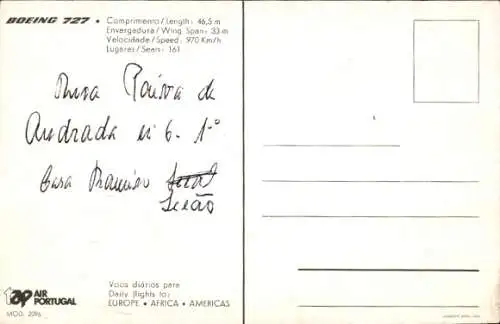 BOEING 727 • Comprimento / Length: 46,5 m
Envergadura / Wing Span: 33 m
Velocidade / Speed: 970 Km/h
Lugares / Seats: 161
Paiva de
Andrada nº 6. 1º
Casa Ramiro
Leão
tap AIR PORTUGAL
MOD. 2096
Voos diários para
Daily flights to:
EUROPE • AFRICA • AMERICAS